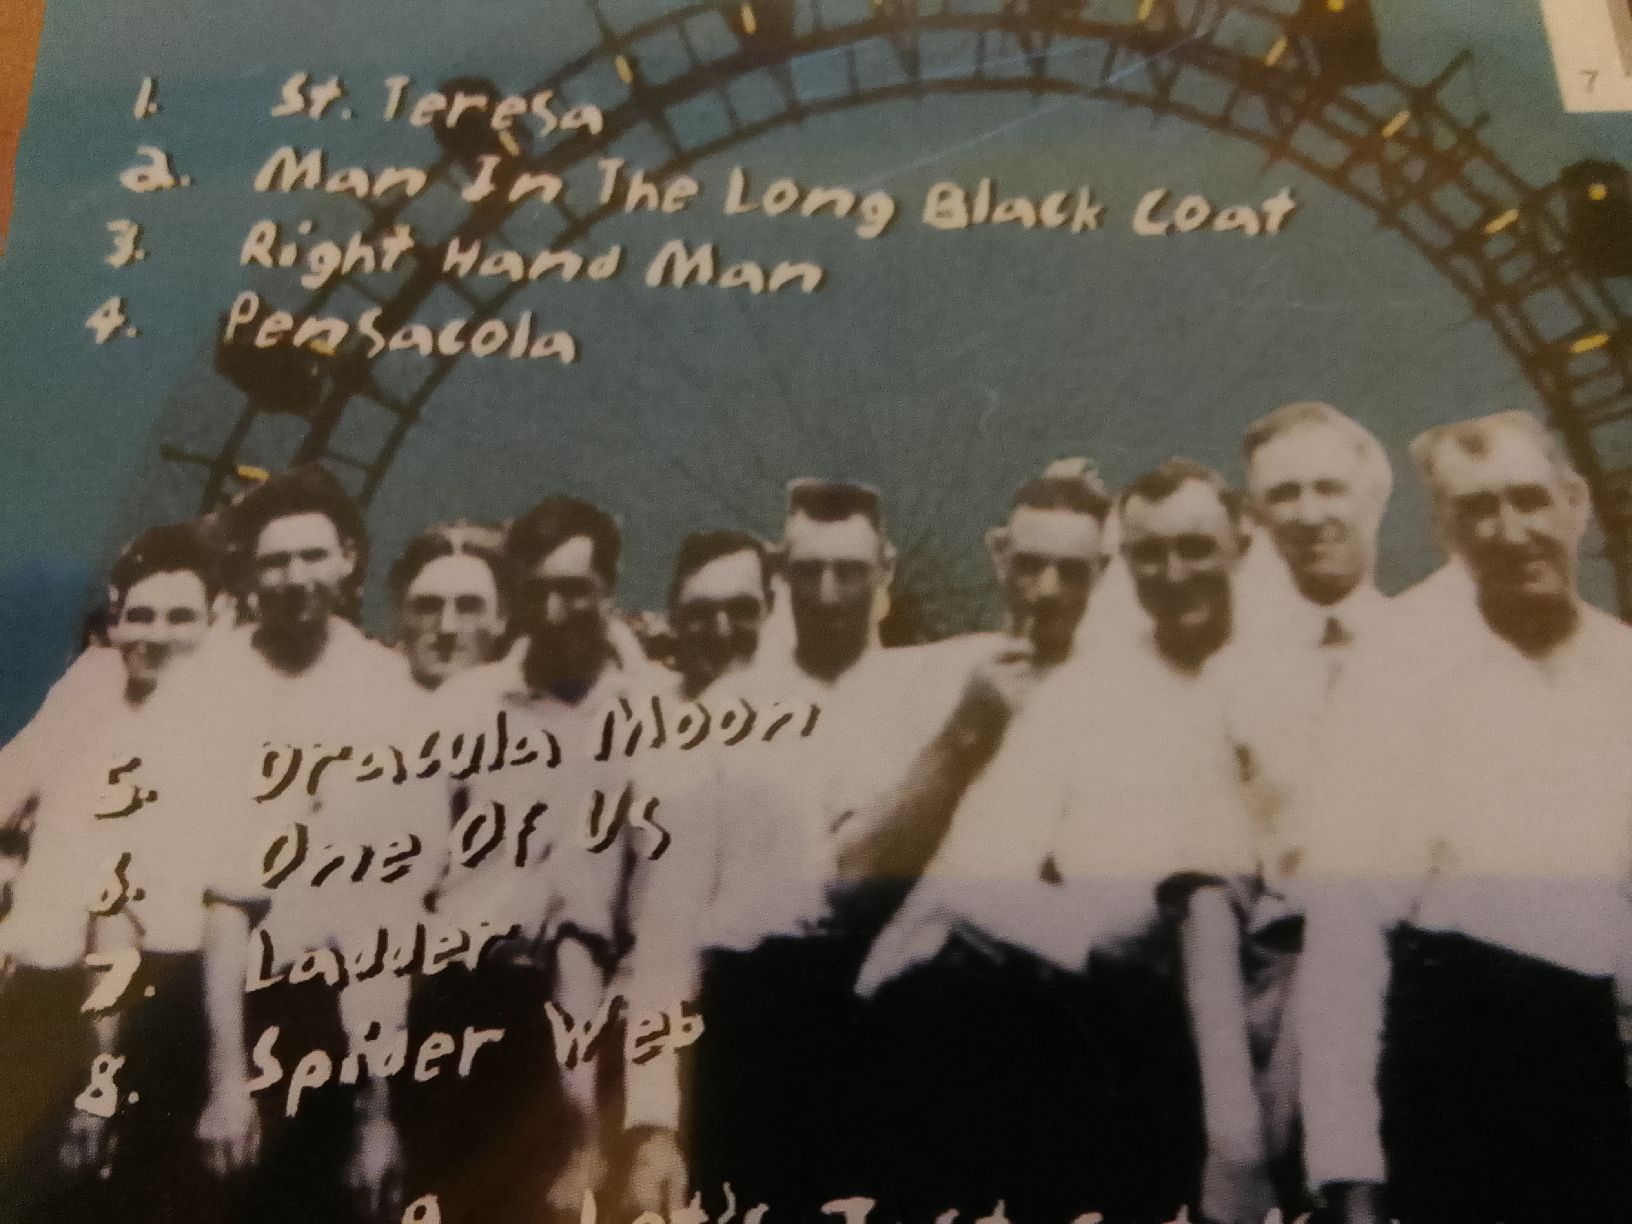 7
1. St. Teresa
2. Man In The Long Black Coat
3. Right Hand Man
4. Pensacola
5. Dracula Moon
6. One Of Us
7. Ladder
8. Spider Web
9. Let's Just Get